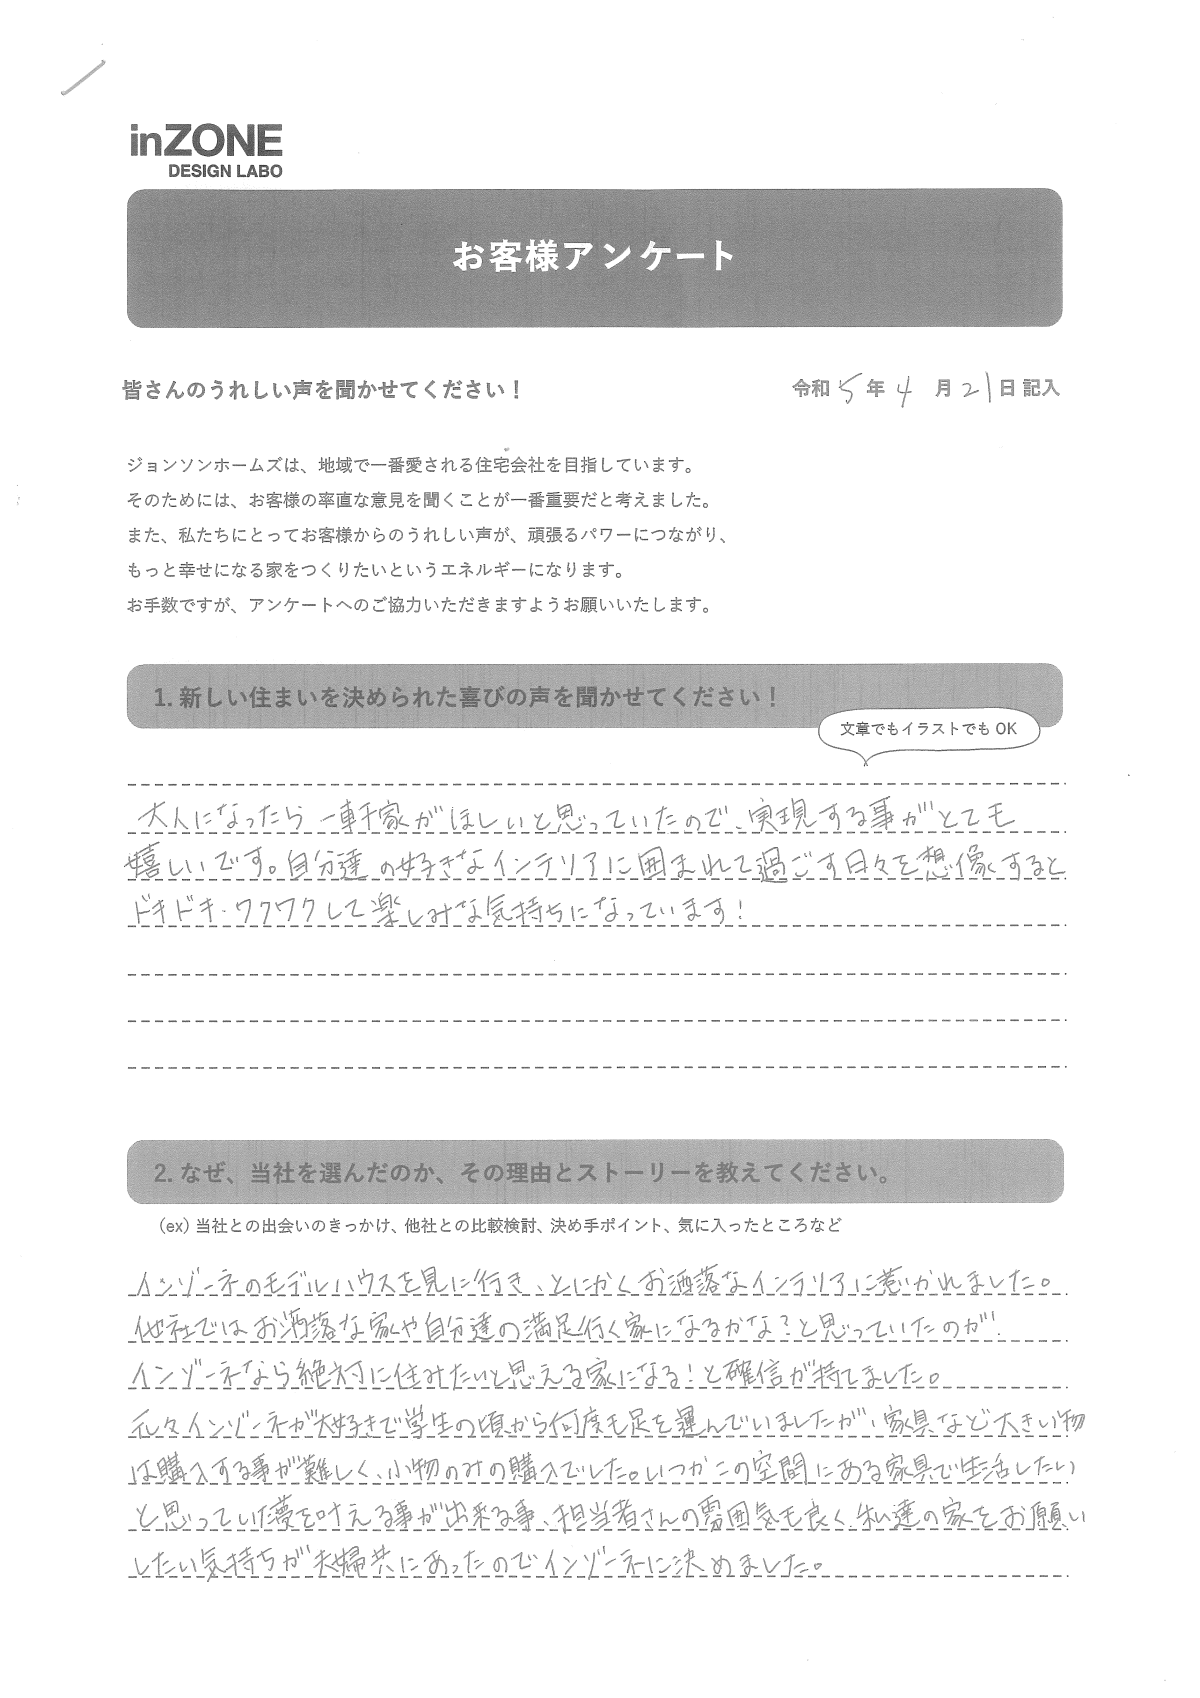 inZONE
DESIGN LABO
お客様アンケート
皆さんのうれしい声を聞かせてください！
令和5年4月21日記入
ジョンソンホームズは、地域で一番愛される住宅会社を目指しています。
そのためには、お客様の率直な意見を聞くことが一番重要だと考えました。
また、私たちにとってお客様からのうれしい声が、頑張るパワーにつながり、
もっと幸せになる家をつくりたいというエネルギーになります。
お手数ですが、アンケートへのご協力いただきますようお願いいたします。
1. 新しい住まいを決められた喜びの声を聞かせてください！
文章でもイラストでもOK
大人になったら一軒家がほしいと思っていたので、実現する事がとても
嬉しいです。自分達の好きなインテリアに囲まれて過ごす日々を想像すると
ドキドキ・ワクワクして楽しみな気持ちになっています！
2. なぜ、当社を選んだのか、その理由とストーリーを教えてください。
（ex）当社との出会いのきっかけ、他社との比較検討、決め手ポイント、気に入ったところなど
インゾーネのモデルハウスを見に行き、とにかくお洒落なインテリアに惹かれました。
他社ではお洒落な家や自分達の満足行く家になるかな？と思っていたのが、
インゾーネなら絶対に住みたいと思える家になる！と確信が持てました。
元々インゾーネが大好きで学生の頃から何度も足を運んでいましたが、家具など大きい物
は購入する事が難しく、小物のみの購入でした。いつかこの空間にある家具で生活したい
と思っていた夢を叶える事が出来る事、担当者さんの雰囲気も良く、私達の家をお願い
したい気持ちが夫婦共にあったのでインゾーネに決めました。